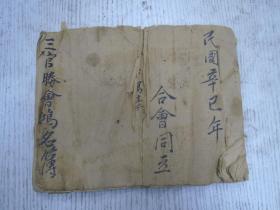 民國辛巳年
合會同立
三官勝會鴻名簿